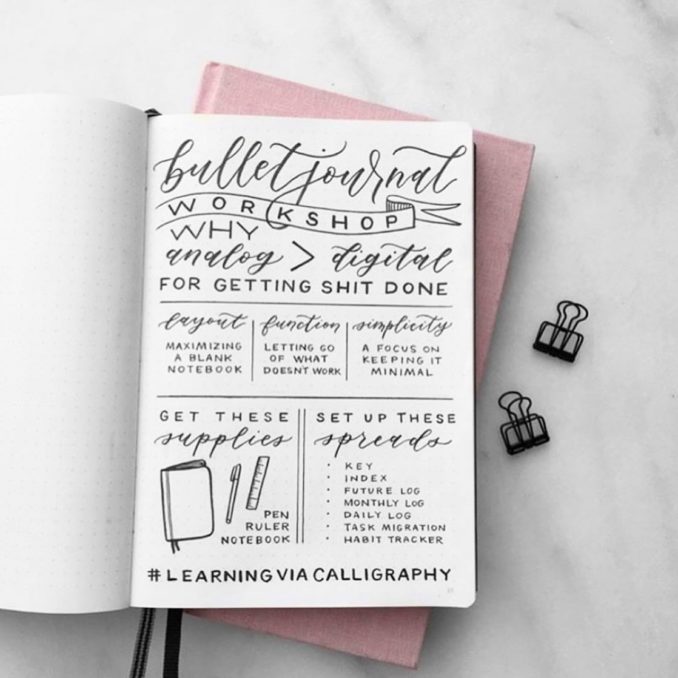 bullet journal
WORKSHOP
WHY
analog > digital
FOR GETTING SHIT DONE
layout
MAXIMIZING
A BLANK
NOTEBOOK
function
LETTING GO
OF WHAT
DOESN'T WORK
simplicity
A FOCUS ON
KEEPING IT
MINIMAL
GET THESE
supplies
PEN
RULER
NOTEBOOK
SET UP THESE
spreads
· KEY
· INDEX
· FUTURE LOG
· MONTHLY LOG
· DAILY LOG
· TASK MIGRATION
· HABIT TRACKER
#LEARNING VIA CALLIGRAPHY